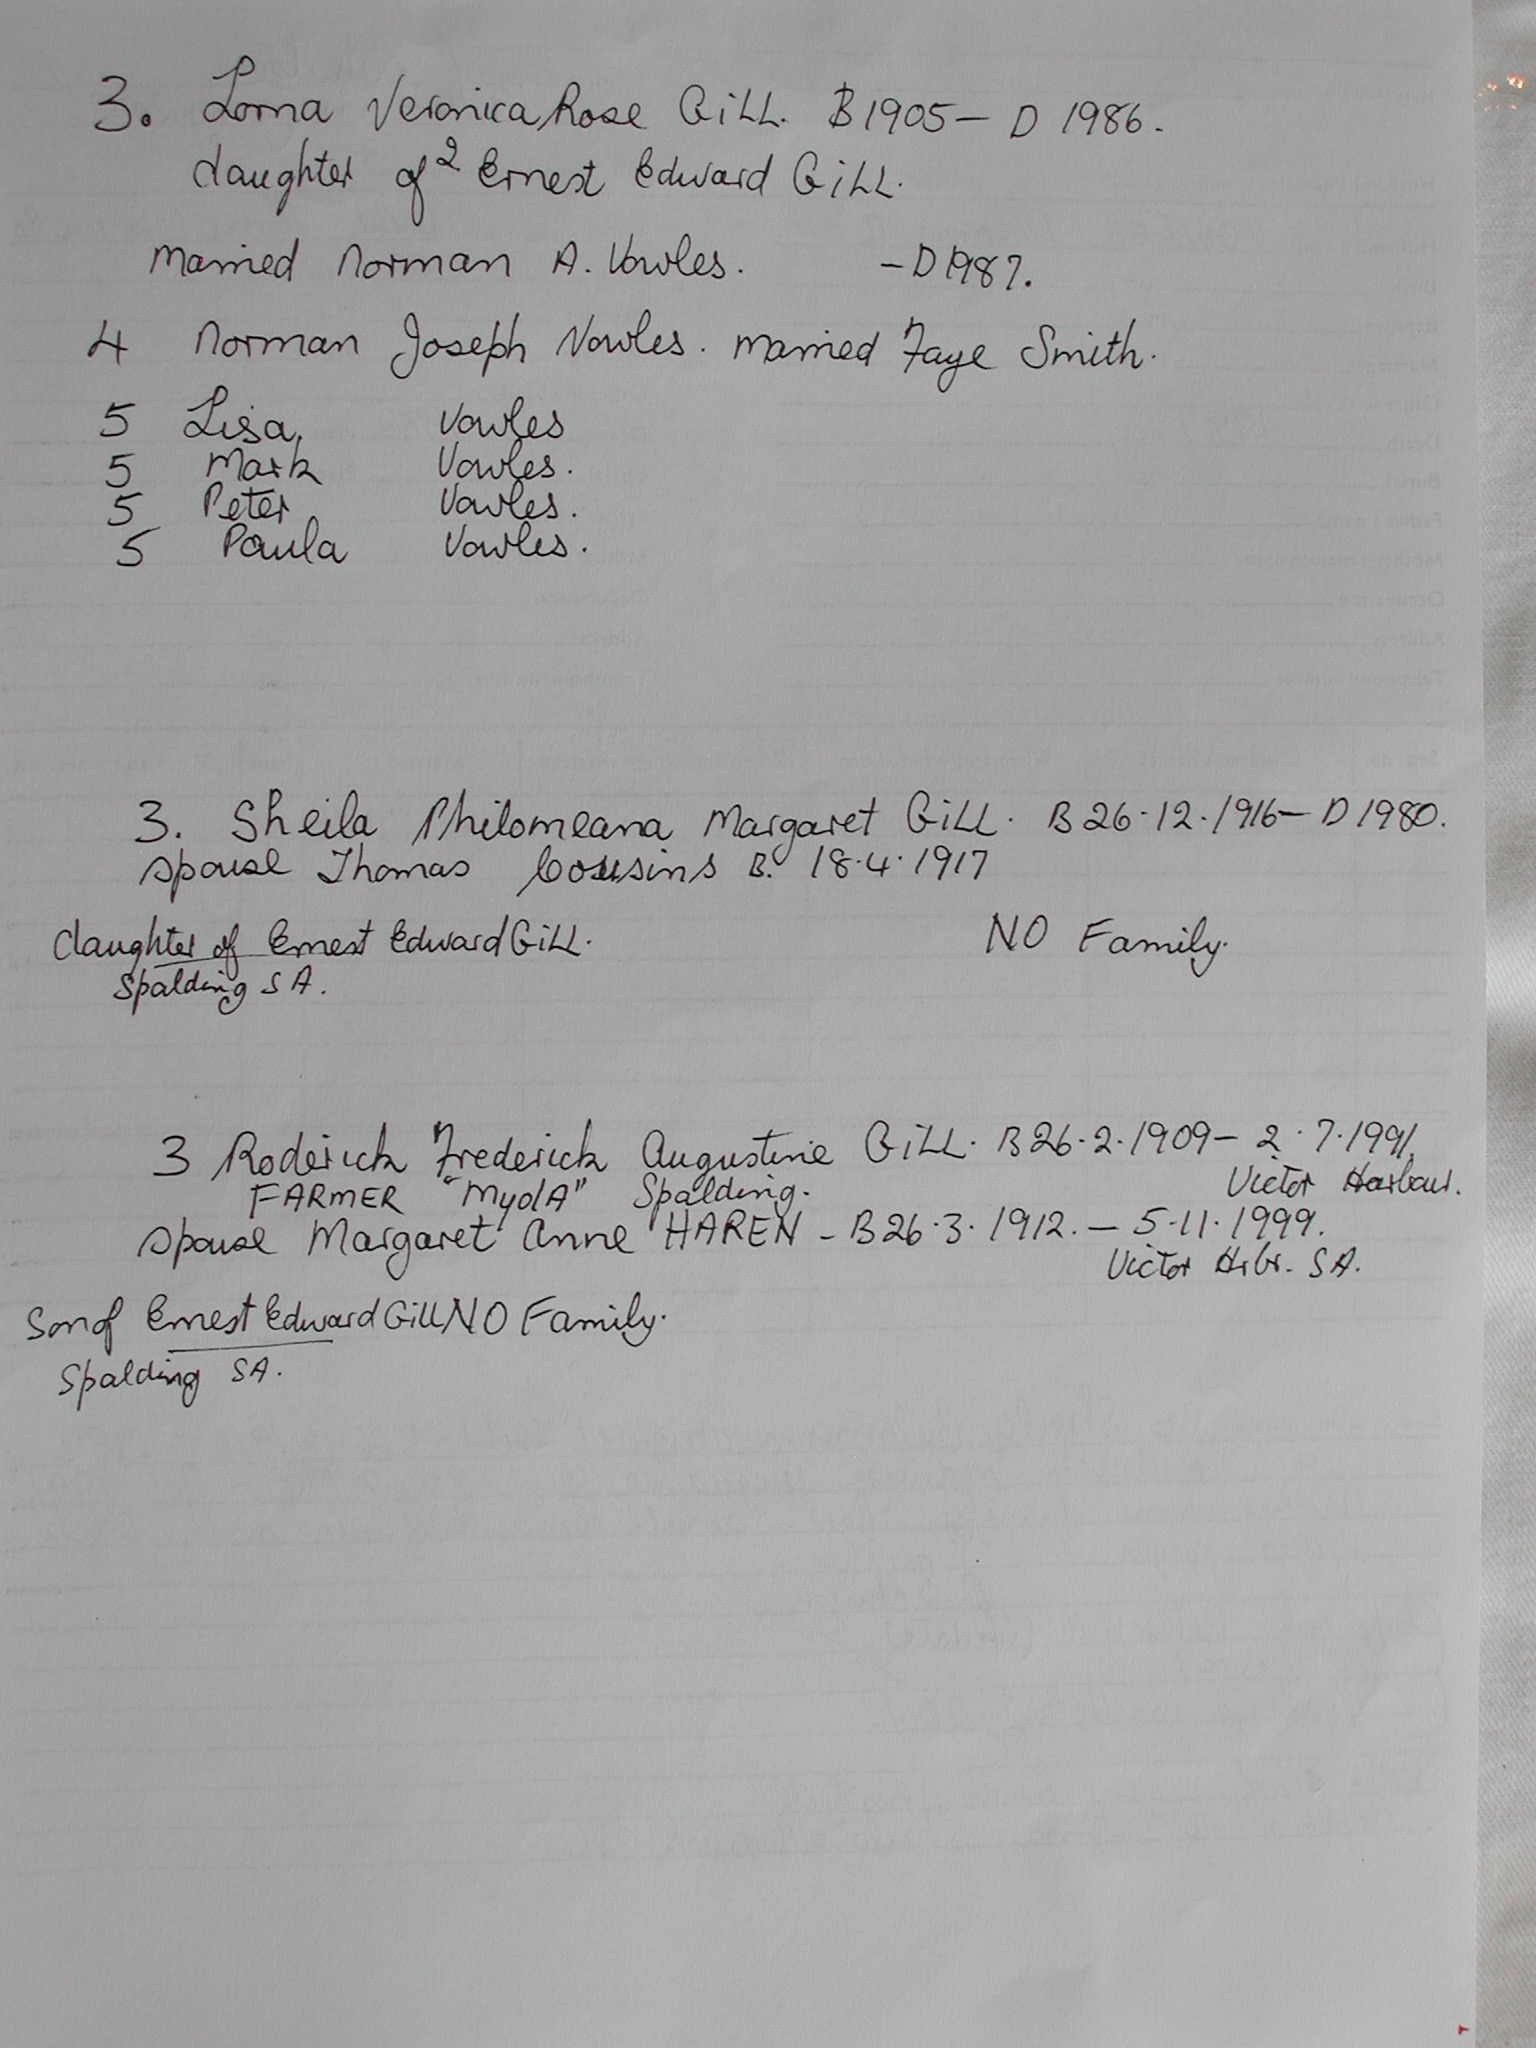 3. Lorna Veronica Rose GiLL. B 1905 - D 1986.
daughter of 2 Ernest Edward GiLL.
Married Norman A. Vowles. - D 1987.
4 Norman Joseph Vowles. Married Faye Smith.
5 Lisa Vowles
5 Mark Vowles.
5 Peter Vowles.
5 Paula Vowles.
3. Sheila Philomeana Margaret GiLL. B 26.12.1916 - D 1980.
spouse Thomas Cousins B. 18.4.1917
daughter of Ernest Edward GiLL. NO Family.
Spalding SA.
3 Roderick Frederick Augustine GiLL. B 26.2.1909 - 2.7.1991.
FARMER "MyolA" Spalding. Victor Harbour.
spouse Margaret Anne HAREN - B 26.3.1912. - 5.11.1999.
Victor Hrbr. SA.
Son of Ernest Edward GiLL NO Family.
Spalding SA.